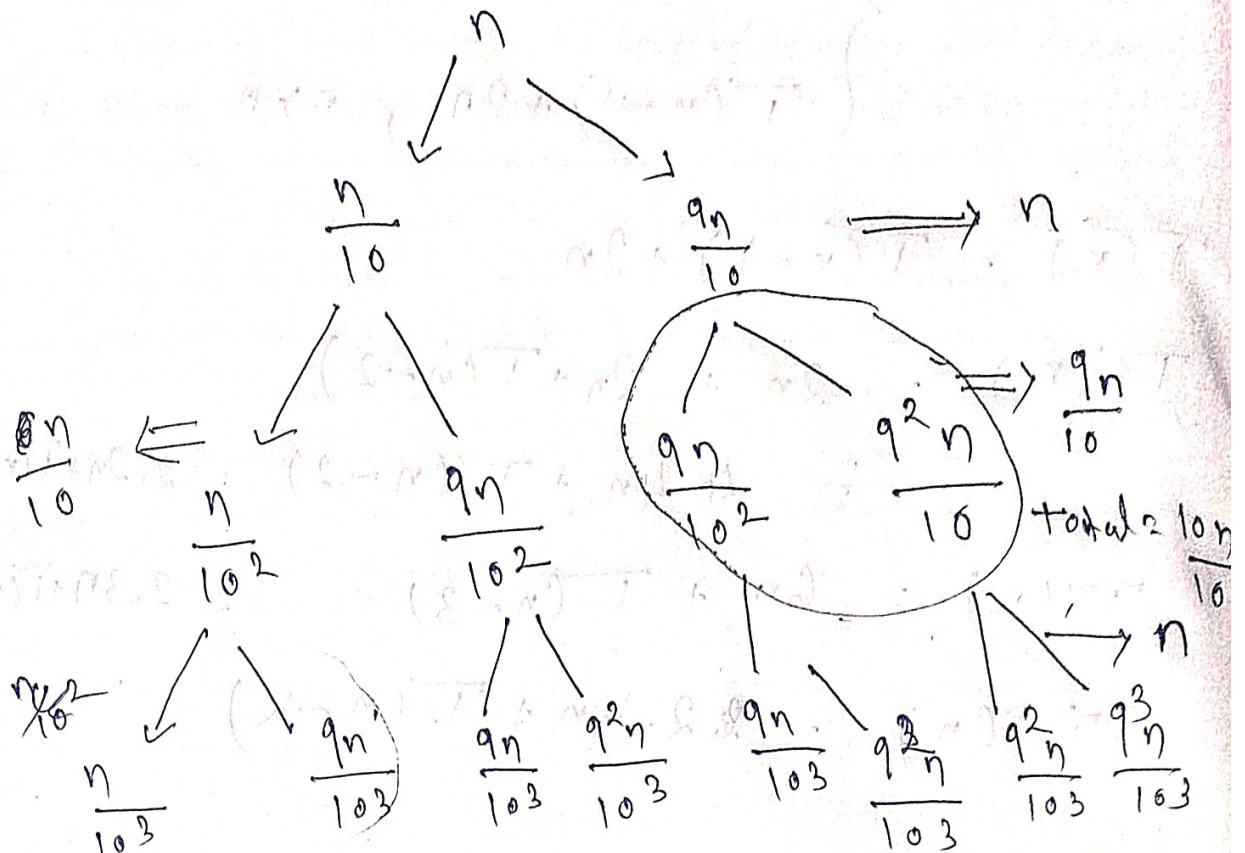 n
n/10 9n/10 ⟹ n
n/10 ⟸ n/10² 9n/10² 9n/10² 9²n/10 ⟹ 9n/10
total = 10n/10
→ n
n/10³ 9n/10³ 9n/10³ 9²n/10³ 9n/10³ 9²n/10³ 9²n/10³ 9³n/103